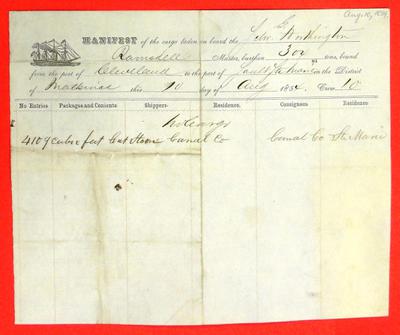 Aug 10, 1854
MANIFEST of the cargo laden on board the Schr G Worthington
Ramsdell Master, burthen 300 tons, bound
from the port of Cleveland to the port of Sault St Marie in the District
of Mackinac this 10 day of Aug 1854. Crew 10
No Entries Packages and Contents Shippers. Residence. Consignees Residence
No Cargo
4109 cubic feet Cut Stone Canal Co Canal Co St Marie